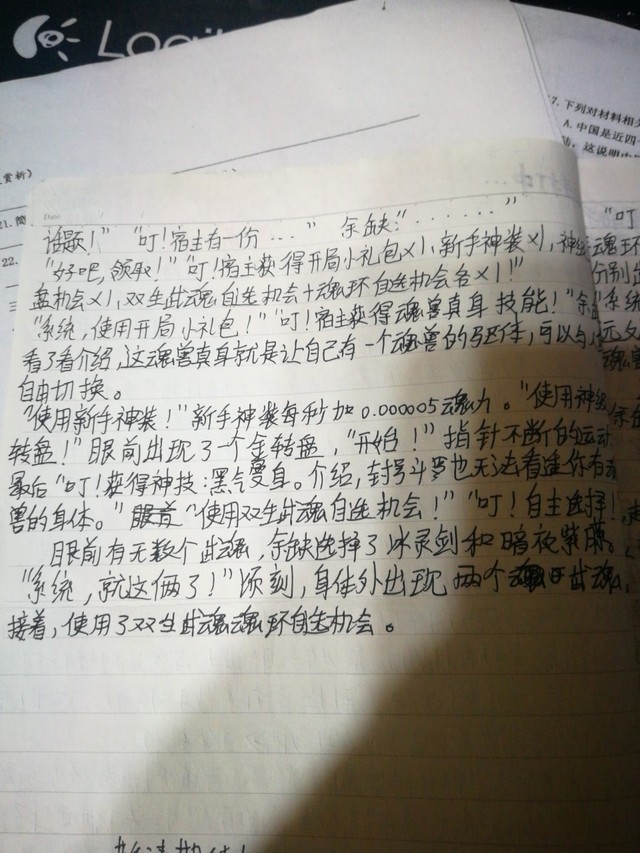 Logi
赏析）
21. 简
22.
7. 下列对材料相关
A. 中国是近四
Date
话题！” “叮！宿主有一份 …” 余缺：“......”
“好吧，领取！” “叮！宿主获得开局小礼包×1，新手神装×1，神级
盘机会×1，双生武魂自选机会＋魂环自选机会各×1！”
“系统，使用开局小礼包！” “叮！宿主获得魂兽真身技能！”余
看了看介绍，这魂兽真身就是让自己有一个魂兽的躯体，可以与人
自由切换。
“使用新手神装！”新手神装每秒加0.000005魂力。“使用神级
转盘！”眼前出现了一个金转盘，“开始！”指针不断的运动
最后“叮！获得神技：黑气覆身。介绍，封号斗罗也无法看透你有
兽的身体。” “使用双生武魂自选机会！” “叮！自主选择！
眼前有无数个武魂，余缺选择了冰灵剑和暗夜紫藤。
“系统，就这俩了！”顷刻，身体外出现两个武魂，
接着，使用了双生武魂魂环自选机会。
“叮
魂环
分别
系统
元
魂兽